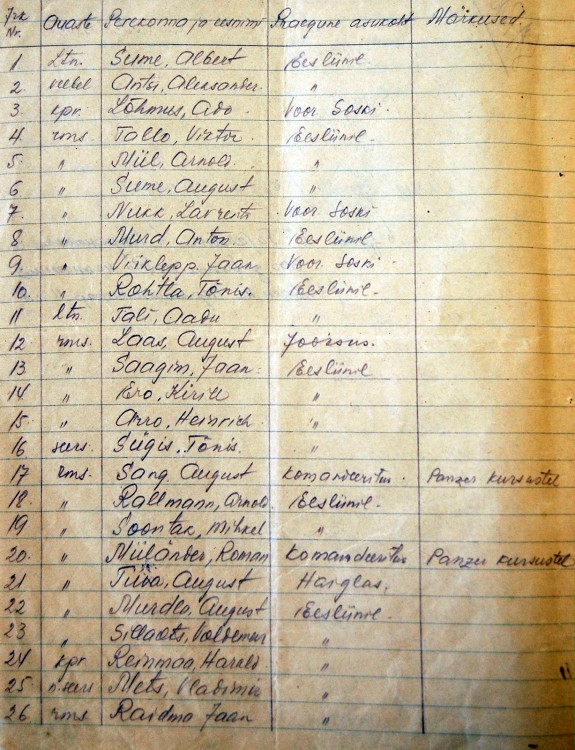 Jrk Nr. Auaste Perekonna ja eesnimi Praegune asukoht Märkused.
1 Ltn. Sume, Albert Eesliinil
2. veebel Ants, Aleksander. "
3 kpr. Lõhmus, Ado Voor. Soski
4. rms. Tallo, Viktor. Eesliinil
5. " Müil, Arnold. "
6 " Sume, August "
7. " Nukk, Lavrenti Voor. Soski
8. " Murd, Anton. Eesliinil
9. " Viiklepp. Jaan Voor. Soski
10. " Rohtla, Tõnis. Eesliinil
11 ltn. Tali, Aadu "
12 rms. Laas, August
13 " Saagim, Jaan Eesliinil
14 " Ero, Kirill "
15. " Arro, Heinrich "
16 seers. Sügis, Tõnis. "
17 rms. Sang August Komandeeritus. Panzer kursustel
18. " Rallmann, Arnold. Eesliinil.
19 " Soontak, Mihkel "
20. " Müländer, Roman Komandeeritus Panzer kursustel
21 " August Harglas.
22 " Murdla, August Eesliinil.
23 " Voldemar "
24 kpr Reinmaa, Harald. "
25 n.seers Mets, Vladimir "
26 rms Raidma Jaan "